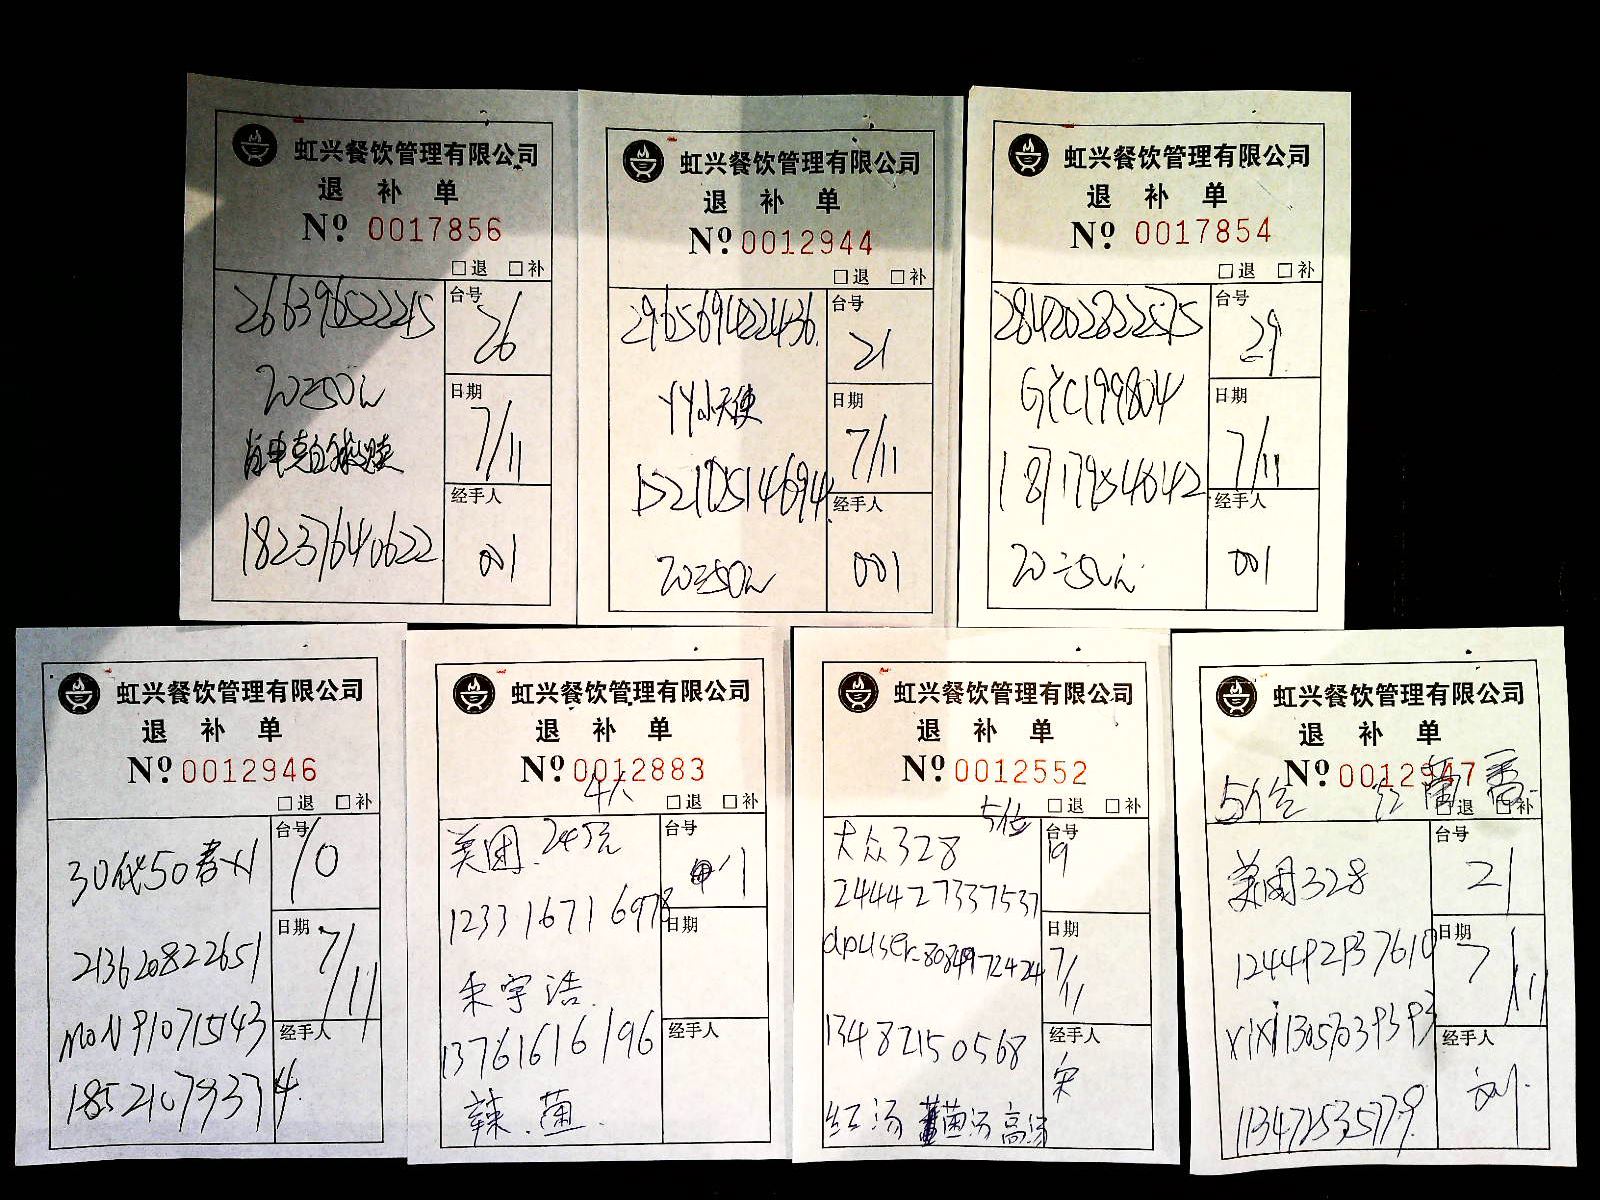 虹兴餐饮管理有限公司
退 补 单
Nº 0017856
□退 □补
266396522245
台号
26
20=50元
日期
7/11
18237640622
经手人
001
虹兴餐饮管理有限公司
退 补 单
Nº 0012944
□退 □补
296569422436
台号
21
YY小天使
日期
7/11
15210514694
经手人
20=50元
001
虹兴餐饮管理有限公司
退 补 单
Nº 0017854
□退 □补
台号
29
GYC199804
日期
7/11
经手人
20=50元
001
虹兴餐饮管理有限公司
退 补 单
Nº 0012946
□退 □补
30代50
台号
10
213620822651
日期
7/11
MoN910715143
经手人
18521079374
虹兴餐饮管理有限公司
退 补 单
Nº 0012883
4人
□退 □补
美团 245元
台号
1
123316716978
日期
宇浩
13761616196
经手人
辣 菌
虹兴餐饮管理有限公司
退 补 单
Nº 0012552
5位
□退 □补
大众328
台号
19
244427337537
dpuser-8084972424
日期
7/11
13482150568
经手人
宋
红汤 菌汤 高汤
虹兴餐饮管理有限公司
退 补 单
Nº 0012947
5位 红 菌 番
□退 □补
美团328
台号
21
日期
7/11
经手人